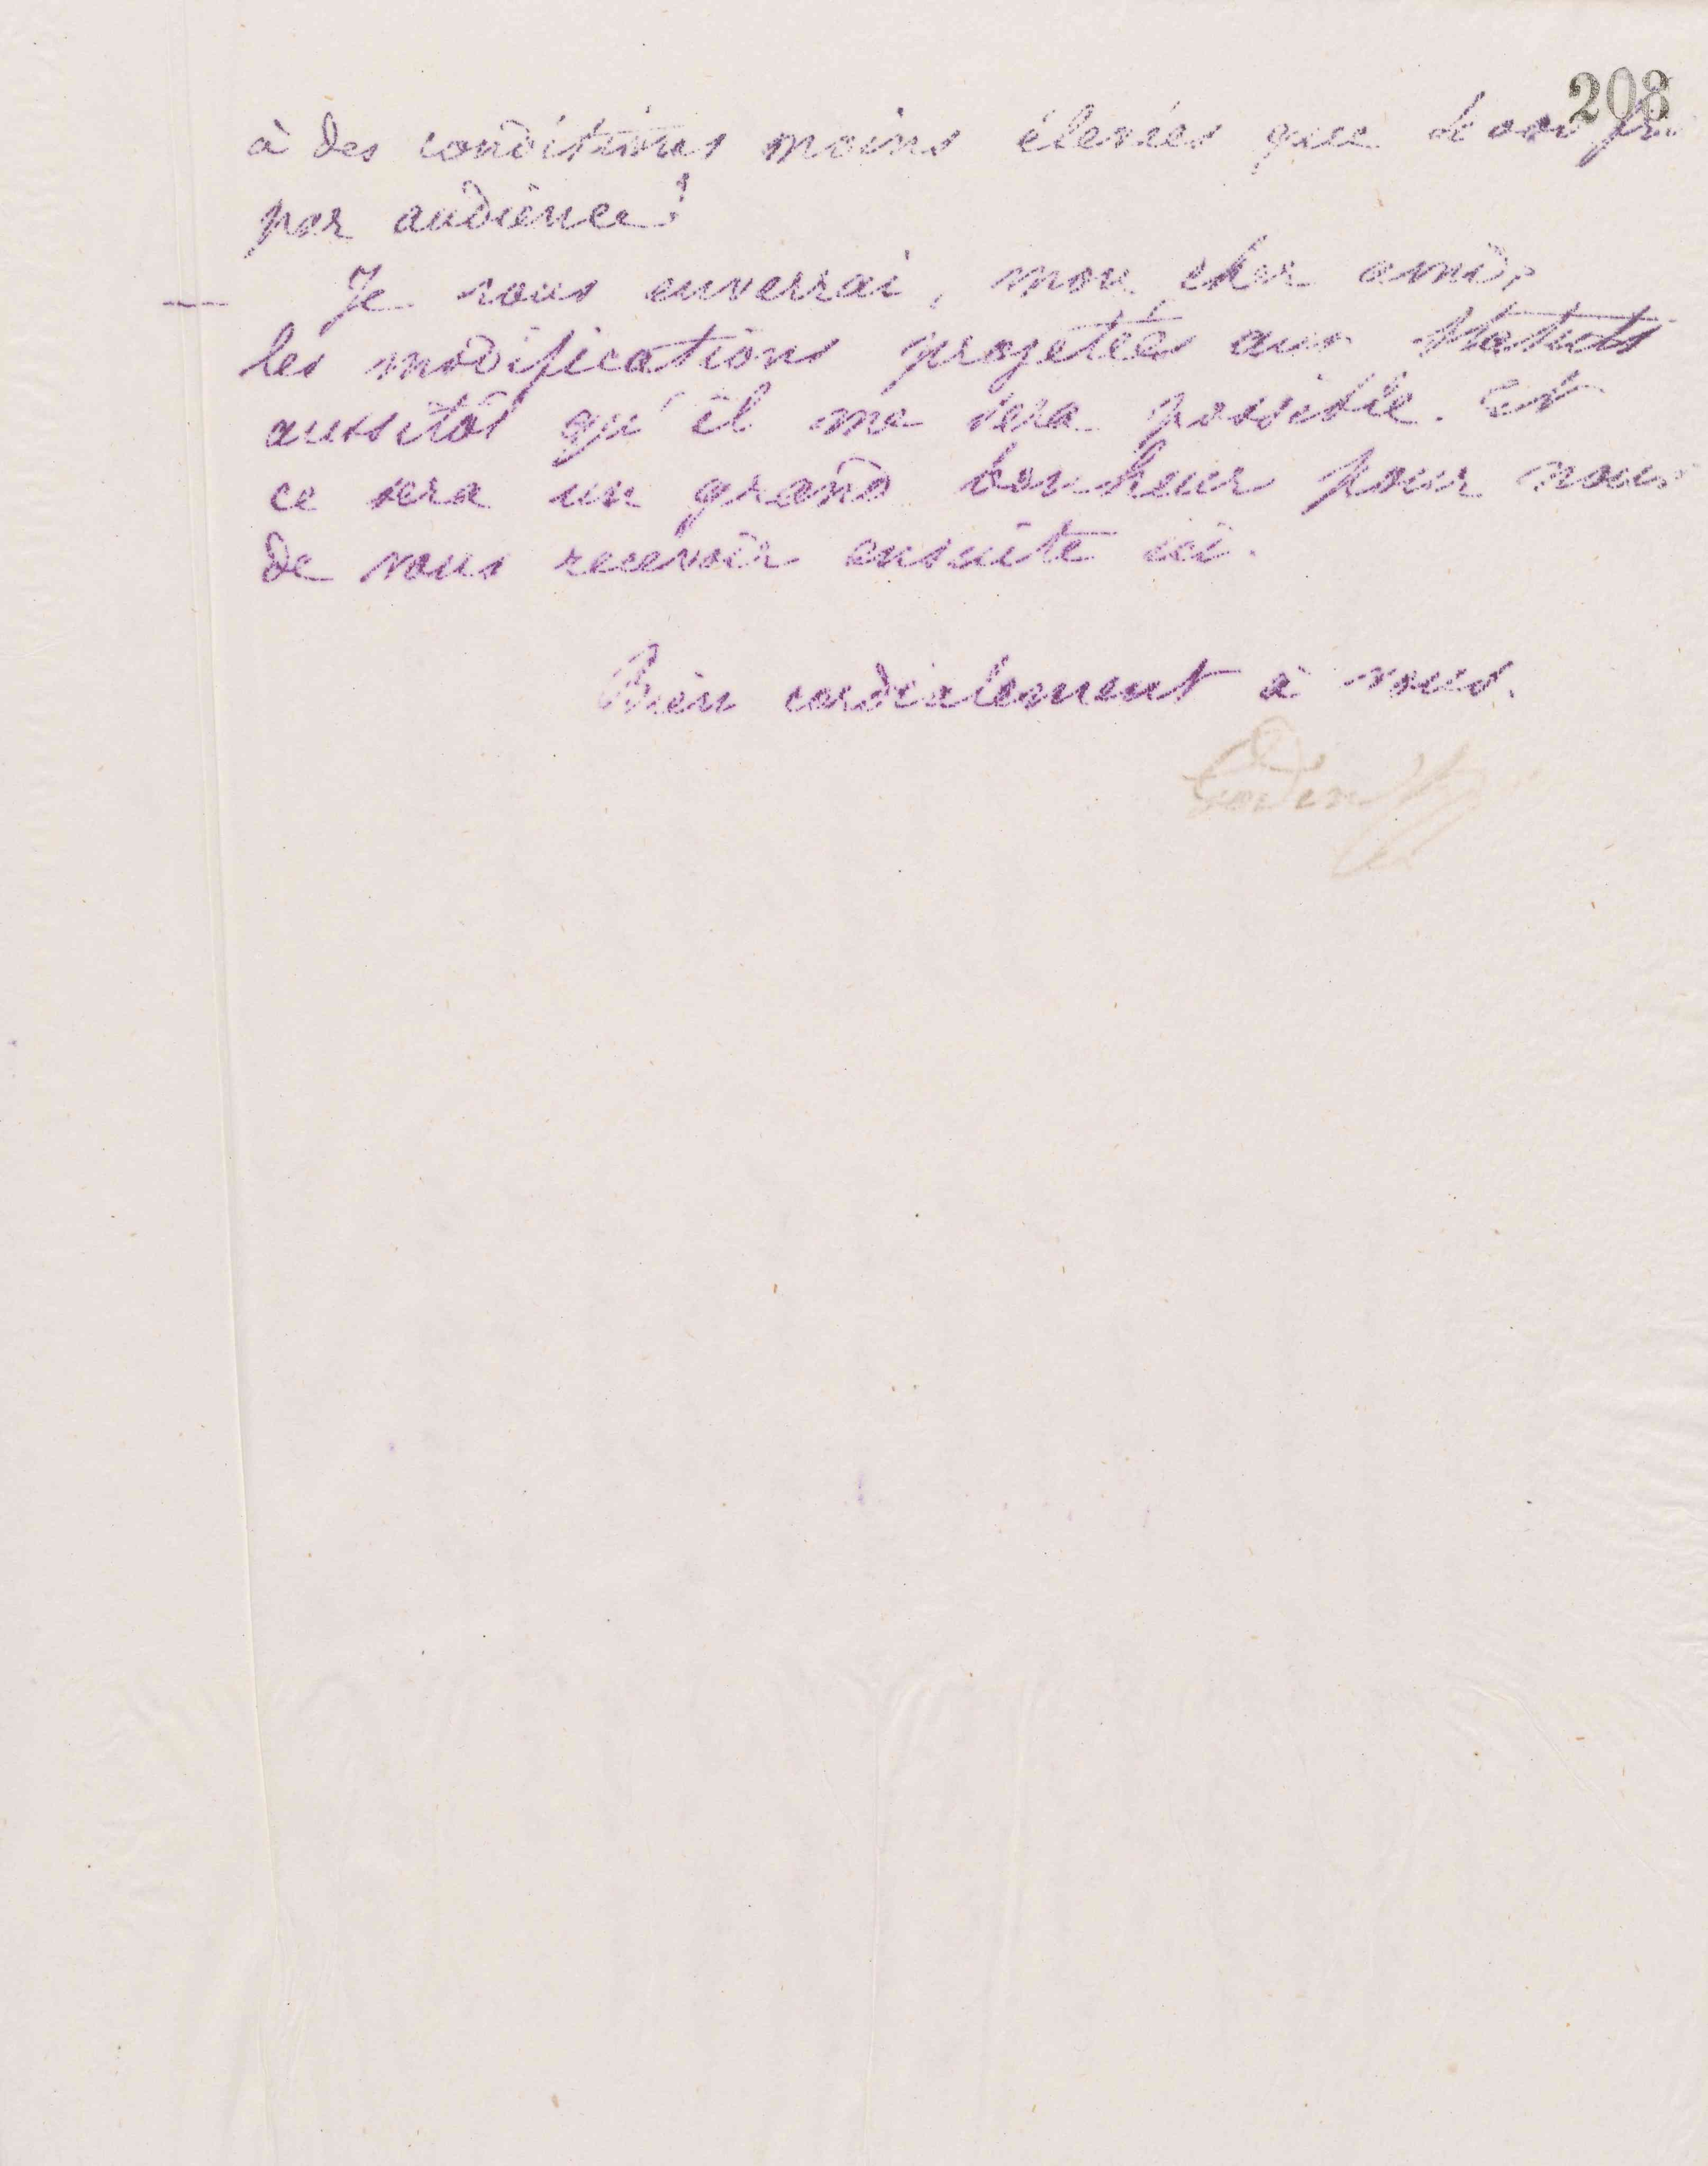 208
à des conditions moins élevées que
par audience?
— Je vous enverrai, mon cher ami,
les modifications projetées aux statuts
aussitôt qu'il me sera possible. Et
ce sera un grand bonheur pour nous
de vous recevoir ensuite ici.
Bien cordialement à vous.
Godin